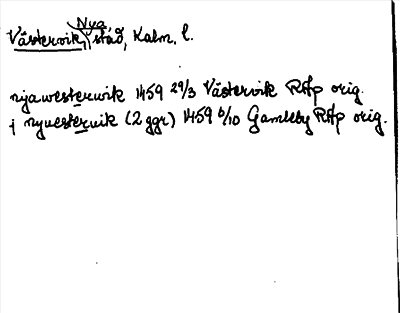 Västervik, Nya, stad, Kalm. l.
nyawesterwik 1459 29/3 Västervik RAp orig.
i nyuesteruik (2 ggr) 1459 6/10 Gamleby RAp orig.